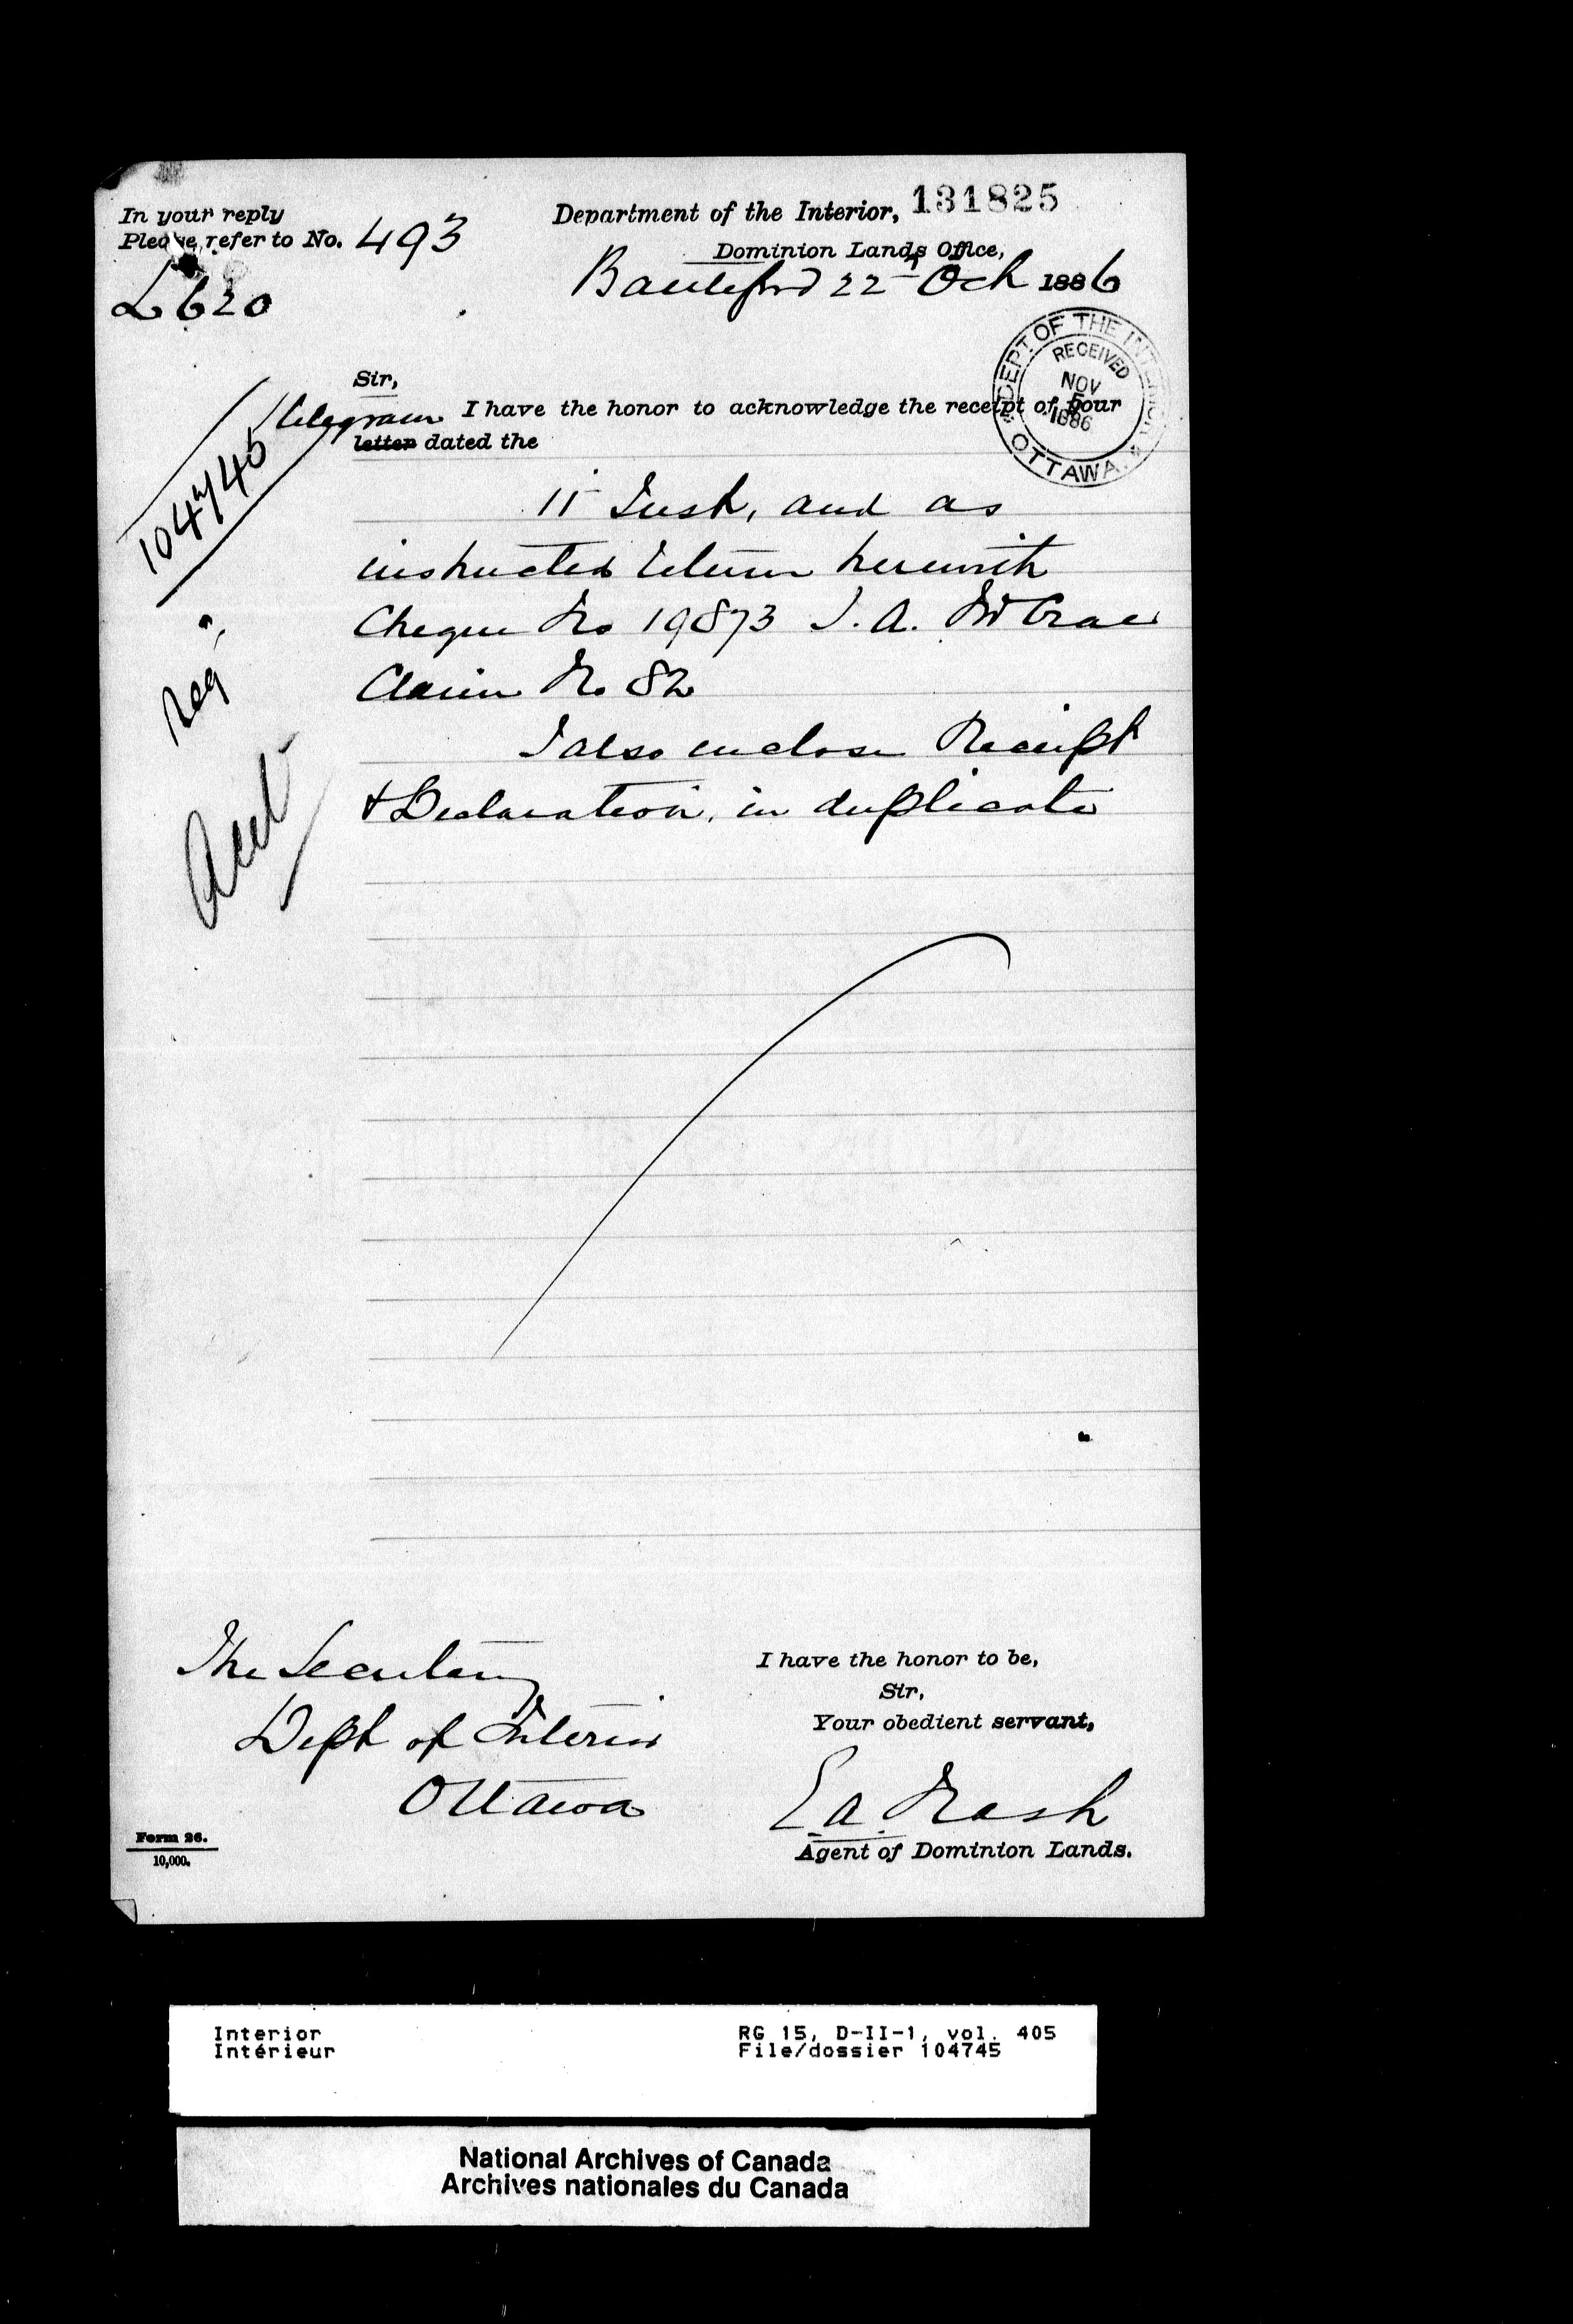 131825
In your reply
Please refer to No. 493
L 620
Department of the Interior,
Dominion Lands Office,
Battleford 22nd Oct 1886
DEPT. OF THE INTERIOR
RECEIVED
NOV
5
1886
OTTAWA.
Sir,
telegram I have the honor to acknowledge the receipt of your
letter dated the
11 Inst, and as
instructed return herewith
Cheque No 19873 J. A. McCrae
Claim No 82
I also enclose Receipt
& Declaration, in duplicate
104745
Reg
The Secretary
Dept of Interior
Ottawa
I have the honor to be,
Sir,
Your obedient servant,
E. A. Nash
Agent of Dominion Lands.
Form 26.
10,000.
Interior
Intérieur
RG 15, D-II-1, vol. 405
File/dossier 104745
National Archives of Canada
Archives nationales du Canada